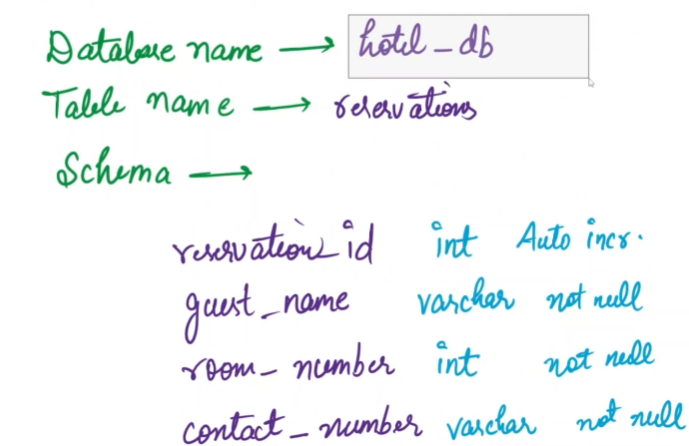 Database name → hotel_db
Table name → reservations
Schema →
reservation_id int Auto incr.
guest_name varchar not null
room_number int not null
contact_number varchar not null